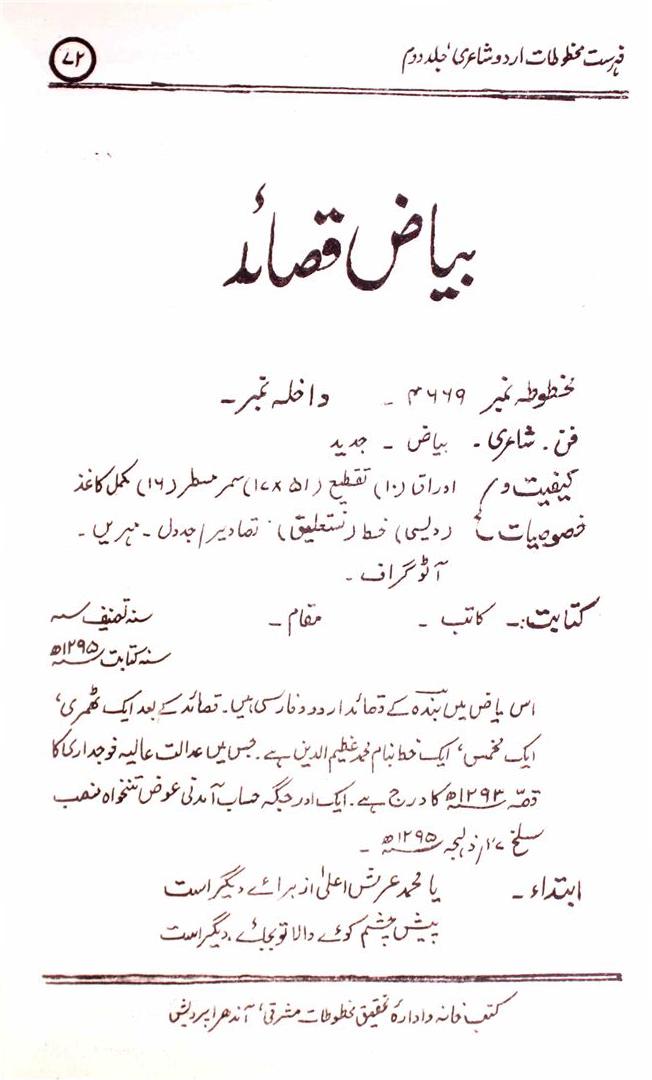 فہرست مخطوطات اردو شاعری ٬ جلد دوم
۷۲
بیاض قصائد
مخطوطہ نمبر ۴۶۶۹ ۔ داخلہ نمبر ۔
فن ۔ شاعری ۔ بیاض ۔ جدید
کیفیت و اوراق (۱۰) تقطیع (۵۱ × ۱۷) سمر مسطر (۱۶) مکمل کاغذ
خصوصیات (دیسی) خط (نستعلیق) تصاویر / جدول ۔ مہریں ۔
آٹو گراف ۔
کتابت :۔ کاتب ۔ مقام ۔ سنہ تصنیف سنہ
سنہ کتابت ۱۲۹۵ھ
اس بیاض میں بندہ کے قصائد اردو و فارسی ہیں ۔ قصائد کے بعد ایک ٹھمری ٬
ایک مخمس ٬ ایک خط بنام محمد عظیم الدین ہے ۔ جس میں عدالت عالیہ فوجداری کا
قصّہ ۱۲۹۳ھ کا درج ہے ۔ ایک اور جگہ حساب آمدنی عوض تنخواہ منصب
سلخ ۲۷/ ذیحجہ ۱۲۹۵ھ ۔
ابتداء ۔ یا محمد عرش اعلیٰ از برائے دیگر است
پیش چشم کوئے والا تو بجائے دیگر است
کتب خانہ و ادارۂ تحقیق مخطوطات مشرقی ٬ آندھرا پردیش